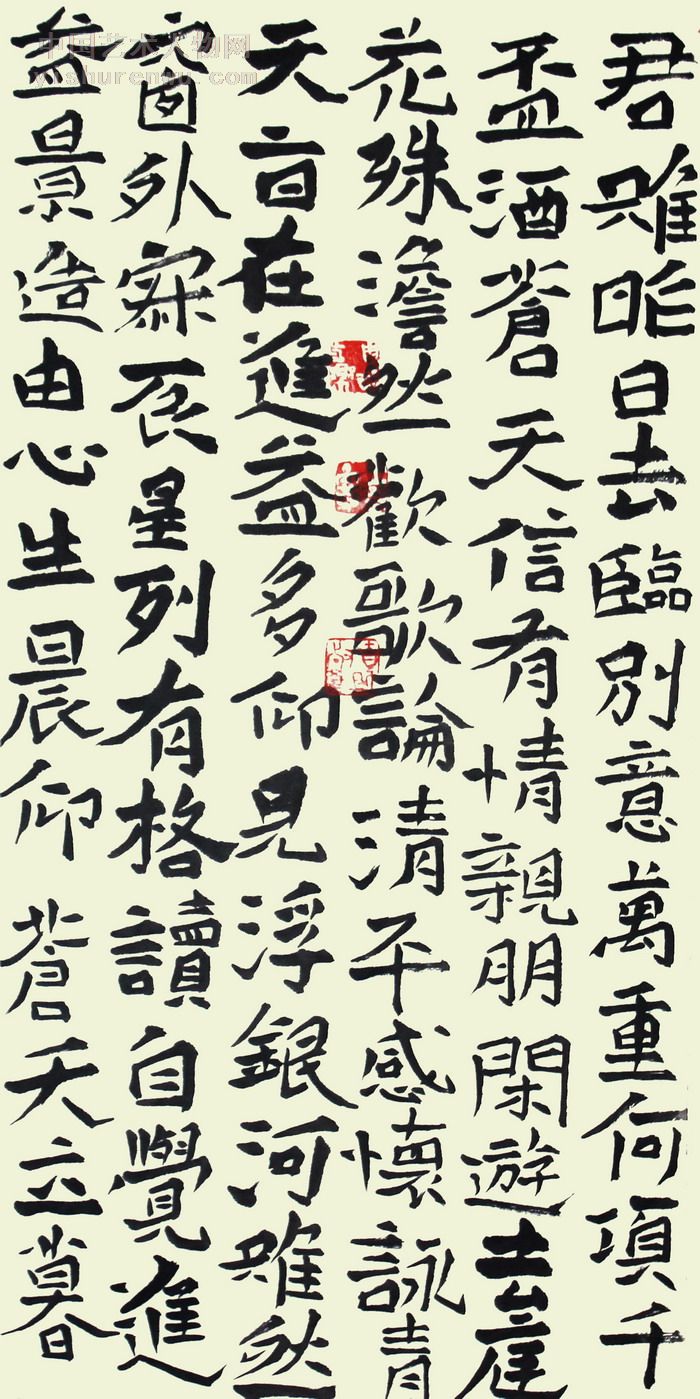 君雖昨日去臨別意萬重何須千
盃酒蒼天信有情親朋閑遊臺庭
花殊澹然一歡歌論清平感懷詠青
天言在進益多仰見浮銀河雖然
窗外寂辰星列有格讀自覺進
益景造由心生晨仰蒼天立暮
中国艺术人物网
yishurenwu.com